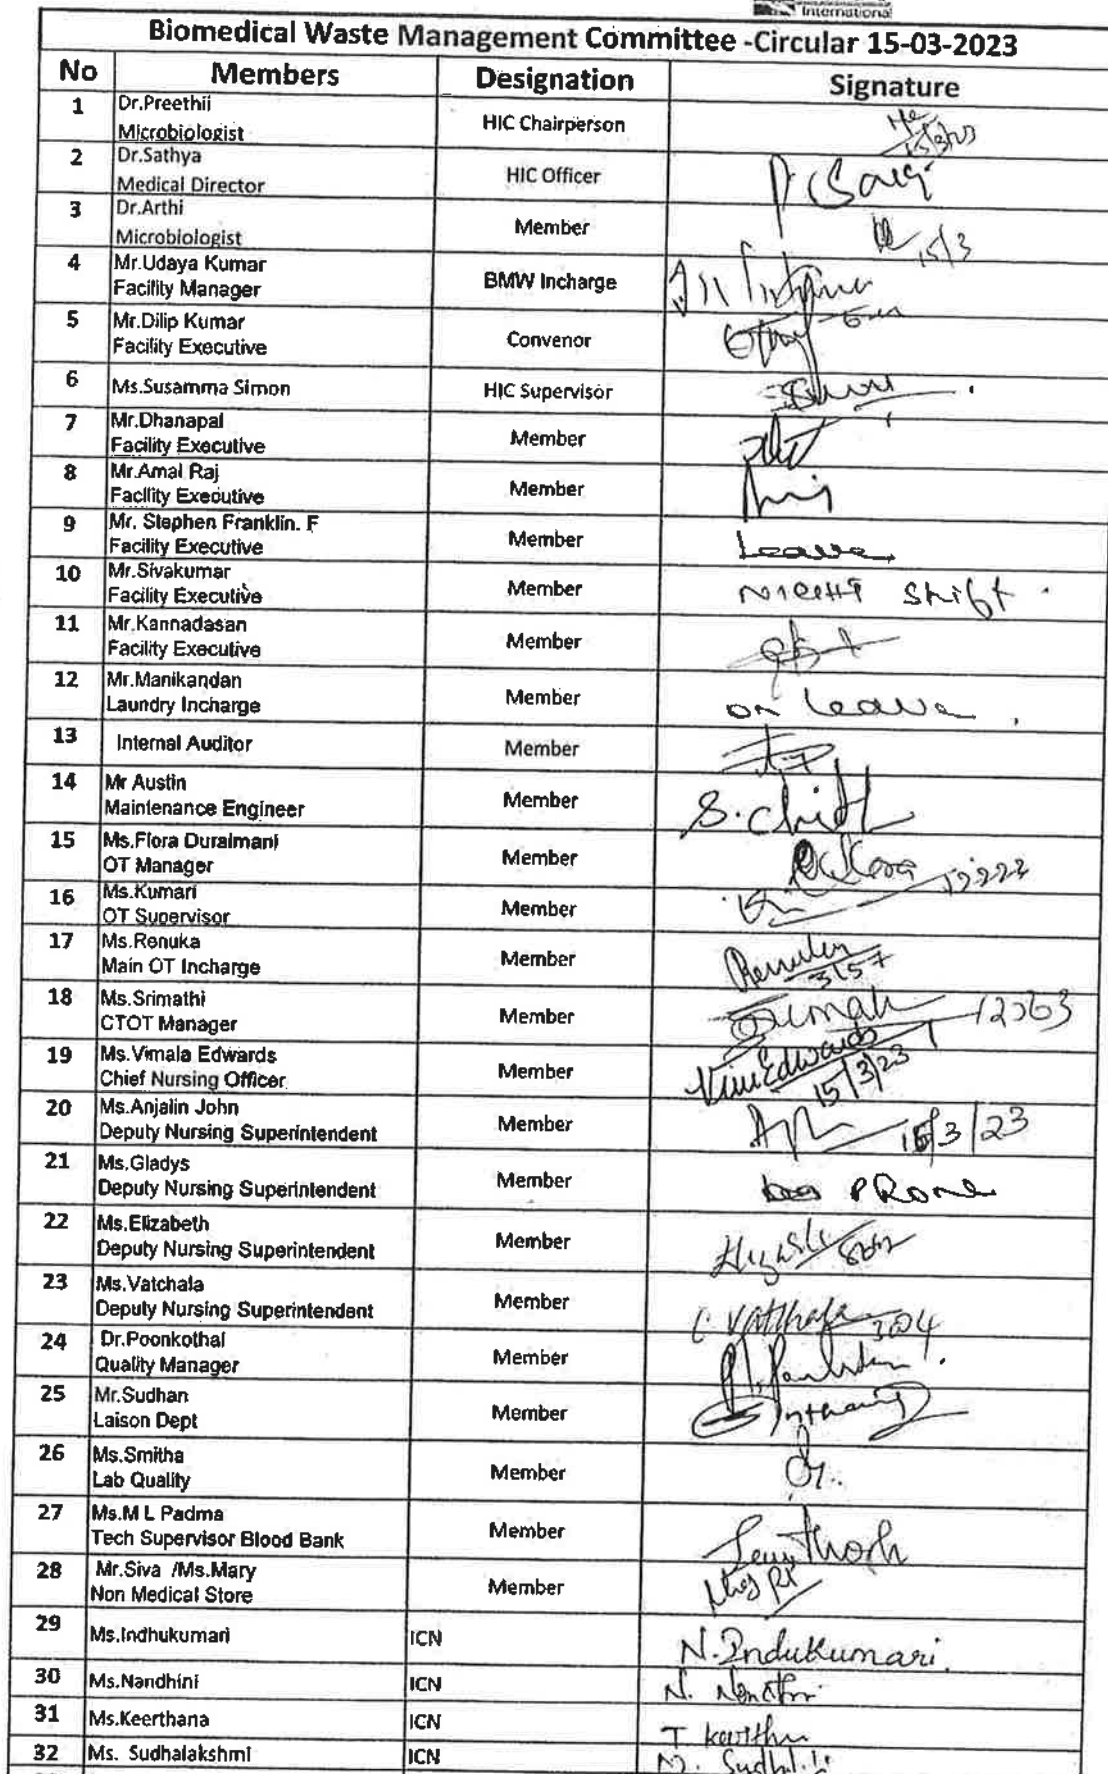 International
Biomedical Waste Management Committee -Circular 15-03-2023
No Members Designation Signature
1 Dr.Preethii
Microbiologist HIC Chairperson 15/3/23
2 Dr.Sathya
Medical Director HIC Officer
3 Dr.Arthi
Microbiologist Member 15/3
4 Mr.Udaya Kumar
Facility Manager BMW Incharge
5 Mr.Dilip Kumar
Facility Executive Convenor
6 Ms.Susamma Simon HIC Supervisor
7 Mr.Dhanapal
Facility Executive Member
8 Mr.Amal Raj
Facility Executive Member
9 Mr. Stephen Franklin. F
Facility Executive Member Leave
10 Mr.Sivakumar
Facility Executive Member NIGHT Shift.
11 Mr.Kannadasan
Facility Executive Member
12 Mr.Manikandan
Laundry Incharge Member on leave.
13 Internal Auditor Member
14 Mr Austin
Maintenance Engineer Member
15 Ms.Flora Duraimani
OT Manager Member
16 Ms.Kumari
OT Supervisor Member
17 Ms.Renuka
Main OT Incharge Member Renuka
3157
18 Ms.Srimathi
CTOT Manager Member
19 Ms.Vimala Edwards
Chief Nursing Officer Member Edwards
15/3/23
20 Ms.Anjalin John
Deputy Nursing Superintendent Member 15/3/23
21 Ms.Gladys
Deputy Nursing Superintendent Member
22 Ms.Elizabeth
Deputy Nursing Superintendent Member
23 Ms.Vatchala
Deputy Nursing Superintendent Member
24 Dr.Poonkothai
Quality Manager Member
25 Mr.Sudhan
Laison Dept Member
26 Ms.Smitha
Lab Quality Member
27 Ms.M L Padma
Tech Supervisor Blood Bank Member
28 Mr.Siva /Ms.Mary
Non Medical Store Member
29 Ms.Indhukumari ICN N.Indukumari.
30 Ms.Nandhini ICN
31 Ms.Keerthana ICN
32 Ms. Sudhalakshmi ICN